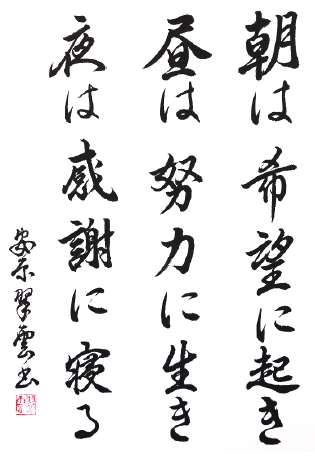 朝は希望に起き
昼は努力に生き
夜は感謝に寝る
安原翠雲書